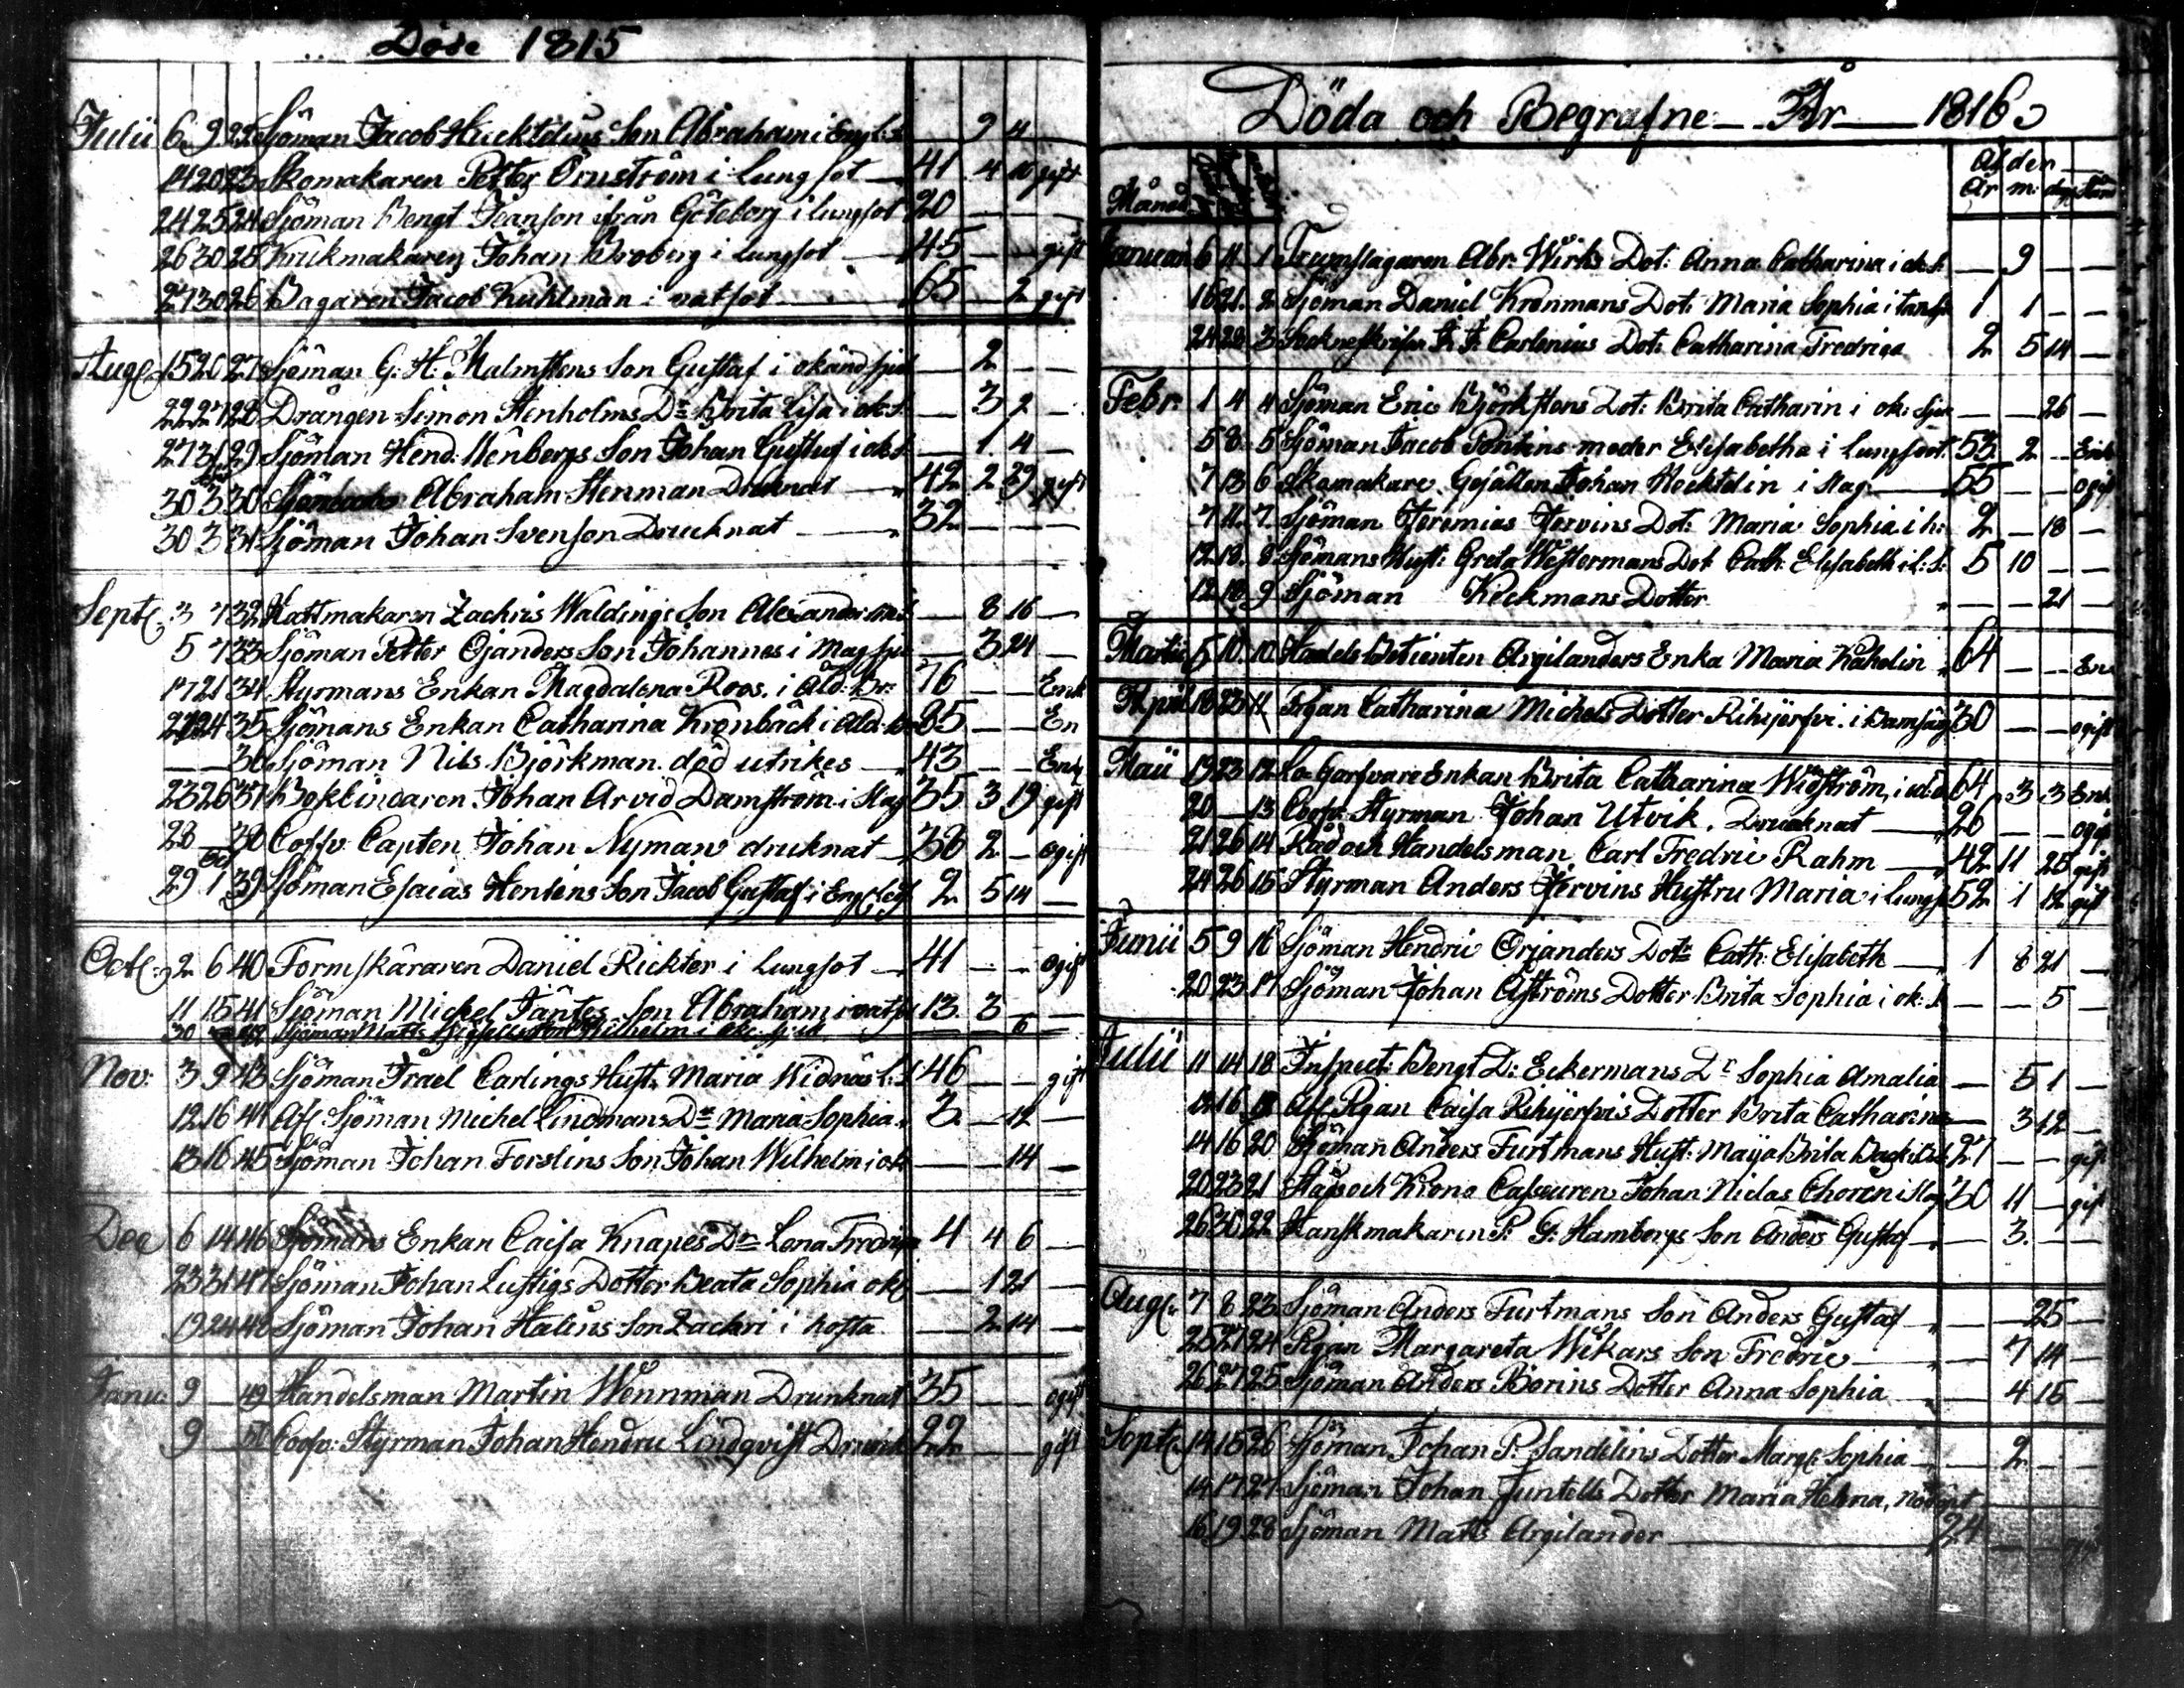 Döde 1815
Julii 6 9 22 Sjöman Jacob Hucktelius Son Abraham i Engl: s: — 9 4 —
14 20 23 Skomakaren Petter Örnström i Lungsot — 41 4 10 gift
24 25 24 Sjöman Bengt Jeanson ifrån Göteborg i lungsot 20 — — —
26 30 25 Krukmakaren Johan Broberg i Lungsot — 45 — — gift
27 30 26 Bagaren Jacob Kuhlman i vatsot — 65 — 2 gift
Aug: 15 20 27 Sjöman G: H: Malmstens Son Gustaf i okänd sjuk — 2 — —
22 27 28 Drängen Simon Stenholms Dr Brita Lisa i ok: s: — 3 2 —
27 31 29 Sjöman Hend: Stenbergs Son Johan Gustaf i ok: s — 1 4 —
30 3 30 Abraham Stenman Drucknat — 42 2 29 gift
30 3 31 Sjöman Johan Svenson Drucknat — 32 — — —
Sept: 3 7 32 Hattmakaren Zachris Waldings Son Alexander — 8 16 —
5 7 33 Sjöman Petter Ojanders Son Johannes i Mag sju — 3 24 —
17 21 34 Styrmans Enkan Magdalena Roos i Åld: Br: 76 — — Enk
22 24 35 Sjömans Enkan Catharina Kronbäck i åld: br 85 — — En
— — 36 Sjöman Nils Björkman död utrikes — 43 — — Enk
23 26 37 Bokbindaren Johan Arvid Damström i Slag 35 3 19 gift
28 — 38 Coffv: Capten Johan Nyman drucknat — 38 2 — ogift
29 1 39 Sjöman Esaias Hentens Son Jacob Gustaf i Eng 2 5 14 —
Oct: 2 6 40 Formskäraren Daniel Rickter i Lungsot — 41 — — ogift
11 15 41 Sjöman Mickel Jäntes Son Abraham i vats 13 3 — —
30 — 42 Sjöman Matts Son Wilhelm i ok: sjuk — — 6
Nov: 3 9 43 Sjöman Israel Carlings Hust: Maria Widnäs l: s 46 — — gift
12 16 44 Af: Sjöman Michel Lindmans Dr Maria Sophia 3 — 12 —
13 16 45 Sjöman Johan Forslins Son Johan Wilhelm i ok — — 14 —
Dec 6 14 46 Sjömans Enkan Caisa Knapes Dr Lena Fredrica 4 4 6 —
23 31 47 Sjöman Johan Lustigs Dotter Beata Sophia ok: — 1 21 —
19 24 48 Sjöman Johan Helins Son Zachri i hosta — 2 14 —
Janu: 9 — 49 Handelsman Martin Wennman Drunknat 35 — — ogift
9 — 50 Coofv: Styrman Johan Hendric Lindqvist Drunk 22 — — gift
Döda och Begrafne År 1816
Månad
Ålder
År m: dag Stånd
Januari 6 11 1 Trumslagaren Abr: Wirks Dot: Anna Catharina i ok: s: — 9 — —
16 21 2 Sjöman Daniel Kronmans Dot: Maria Sophia i tands 1 1 — —
24 28 3 Carlenius Dot: Catharina Fredrica 2 5 14 —
Febr: 1 4 4 Sjöman Eric Björkstens Dot: Brita Catharin i ok: sju — — 26 —
5 8 5 Sjöman Jacob Pontins moder Elisabetha i Lungsoot 53 2 — Enk
7 13 6 Skomakare Gesällen Johan Hecktelin i slag — 55 — — ogift
7 11 7 Sjöman Jeremias Jervins Dot: Maria Sophia i h: 2 — 18 —
12 18 8 Sjömans Hust: Greta Westermans Dot Cath: Elisabeth i l: s: 5 10 — —
12 18 9 Sjöman Keckmans Dotter — — 21 —
Martii 5 10 10 Handels Betienten Argilanders Enka Maria Kahelin 64 — — En
April 18 23 11 Pigan Catharina Michels Dotter Rihijerfvi i Barnsäng 30 — — ogift
Maii 19 23 12 Garfvare Enkan Brita Catharina Widström, i 64 3 3 Enk
20 — 13 Coofv: Styrman Johan Utvik, Drucknat — 26 — — ogift
21 26 14 Råd och Handelsman Carl Fredric Rahm — 42 11 25 gift
24 26 15 Styrman Anders Jervins Hustru Maria i Lungs 52 1 12 gift
Junii 5 9 16 Sjöman Hendric Örjanders Dotr Cath: Elisabeth — 1 8 21 —
20 23 17 Sjöman Johan Åströms Dotter Brita Sophia i ok: s — — 5
Julii 11 14 18 Inspect: Bengt D: Eckermans Dr Sophia Amalia — 5 1 —
12 16 19 Af: Pigan Caisa Rihijerfvis Dotter Brita Catharina — 3 12 —
14 16 20 Sjöman Anders Furtmans Hust: Maija Brita 27 — — gift
20 23 21 Stads och Krono Casseuren Johan Niclas Choren i slag 30 11 — gift
26 30 22 Handskmakaren P: G: Hambergs Son Anders Gustaf — 3 — —
Aug: 7 8 23 Sjöman Anders Furtmans Son Anders Gustaf — — 25 —
25 27 24 Pigan Margareta Wikars Son Fredric — — 7 14 —
26 27 25 Sjöman Anders Borins Dotter Anna Sophia — 4 15 —
Sept: 14 15 26 Sjöman Johan P: Sandelins Dotter Marg: Sophia — 2 — —
14 17 27 Sjöman Johan Juntells Dotter Maria Helena, Nöddöpt
16 19 28 Sjöman Matts Argilander — 24 — —